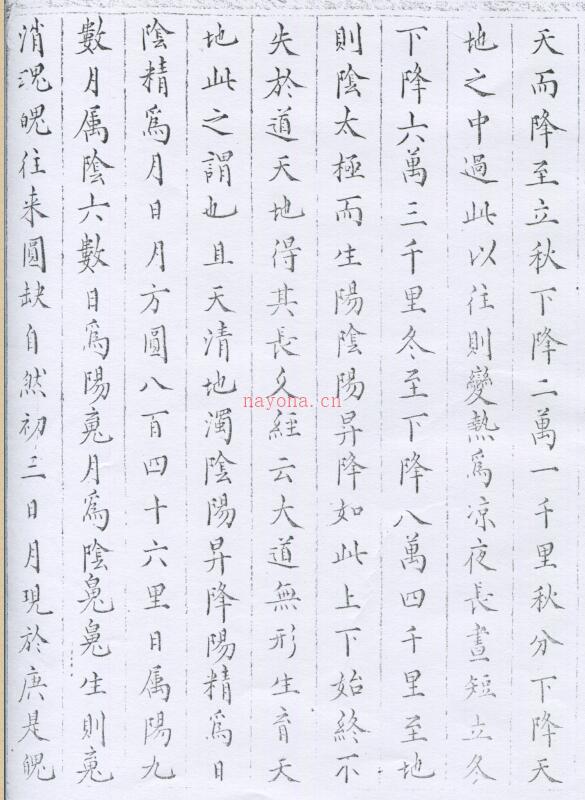 天而降至立秋下降二萬一千里秋分下降天
地之中過此以往則變熱爲凉夜長晝短立冬
下降六萬三千里冬至下降八萬四千里至地
則陰太極而生陽陰陽昇降如此上下始終不
失於道天地得其長久經云大道無形生育天
地此之謂也且天清地濁陰陽昇降陽精爲日
陰精爲月日月方圓八百四十六里日属陽九
數月属陰六數日爲陽䰟月爲陰魄魄生則䰟
消魂魄往来圓缺自然初三日月現於庚是魄
nayona.cn